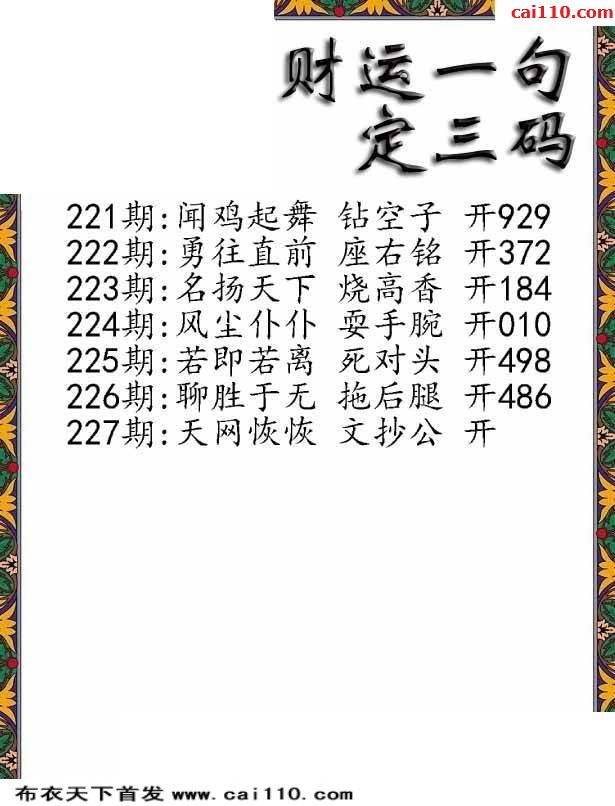 cai110.com
财运一句
定三码
221期:闻鸡起舞 钻空子 开929
222期:勇往直前 座右铭 开372
223期:名扬天下 烧高香 开184
224期:风尘仆仆 耍手腕 开010
225期:若即若离 死对头 开498
226期:聊胜于无 拖后腿 开486
227期:天网恢恢 文抄公 开
布衣天下首发 www.cai110.com